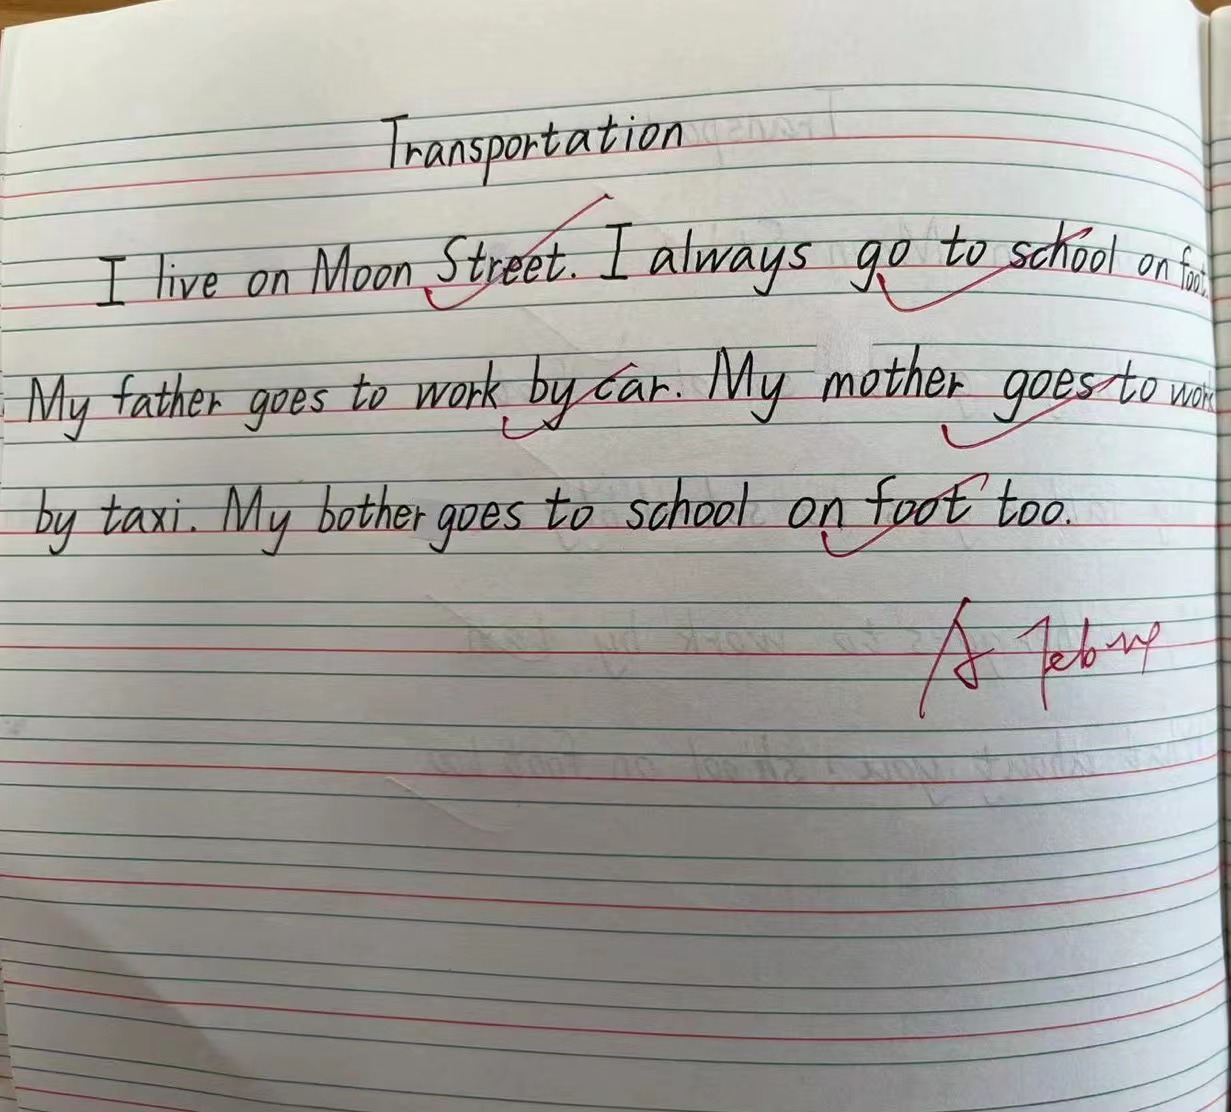 Transportation
I live on Moon Street. I always go to school on foot.
My father goes to work by car. My mother goes to work
by taxi. My bother goes to school on foot too.
A